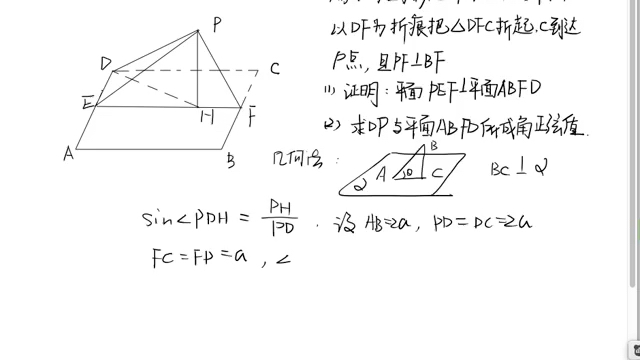 以DF为折痕把△DFC折起.C到达
P点,且PF⊥BF
(1) 证明:平面PEF⊥平面ABFD
(2) 求DP与平面ABFD所成角正弦值.
P
D
C
E
H
F
A
B
几何法:
B
A
θ
C
α
BC⊥α
sin∠PDH = PH/PD . 设AB=2a, PD=DC=2a
FC=FP=a, ∠